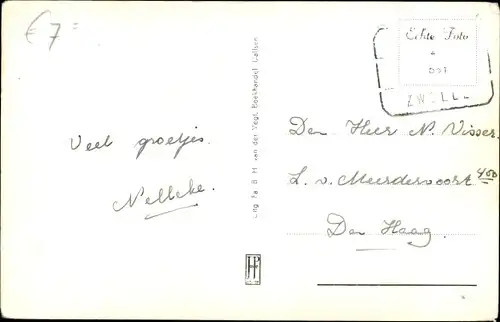 € 7=
Echte Foto
ZWOLLE
Veel groetjes.
Nelleke.
Uitg. Fa. B. H. van der Vegt, Boekhandel, Dalfsen
Den Heer N. Visser.
L. v. Meerdervoort 400
Den Haag.
JP